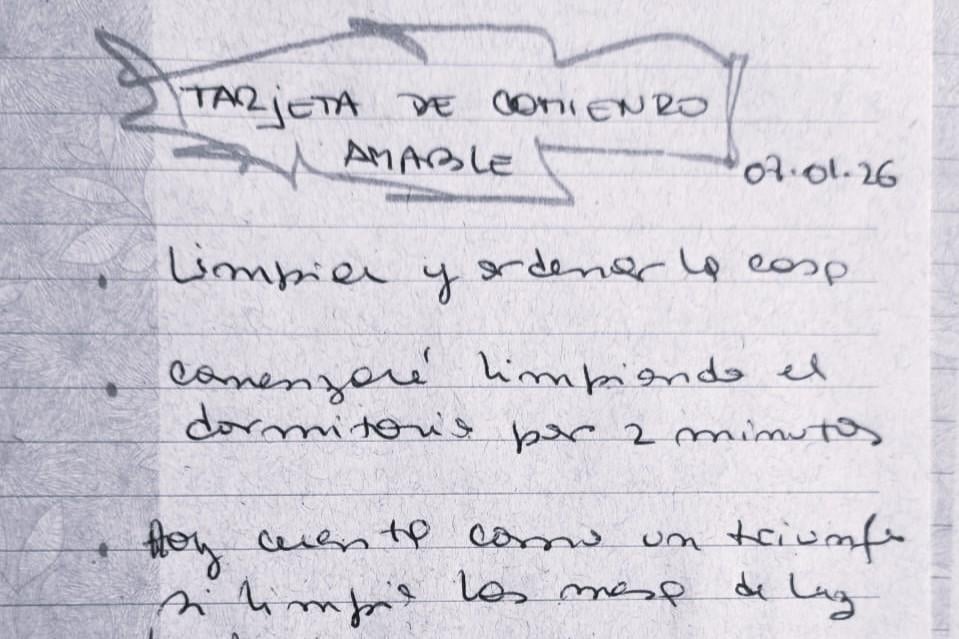 TARJETA DE COMIENZO
AMABLE
07.01.26
• Limpiar y ordenar la casa
• comenzaré limpiando el
dormitorio por 2 minutos
• Hoy cuenta como un triunfo
si limpio las mesa de luz